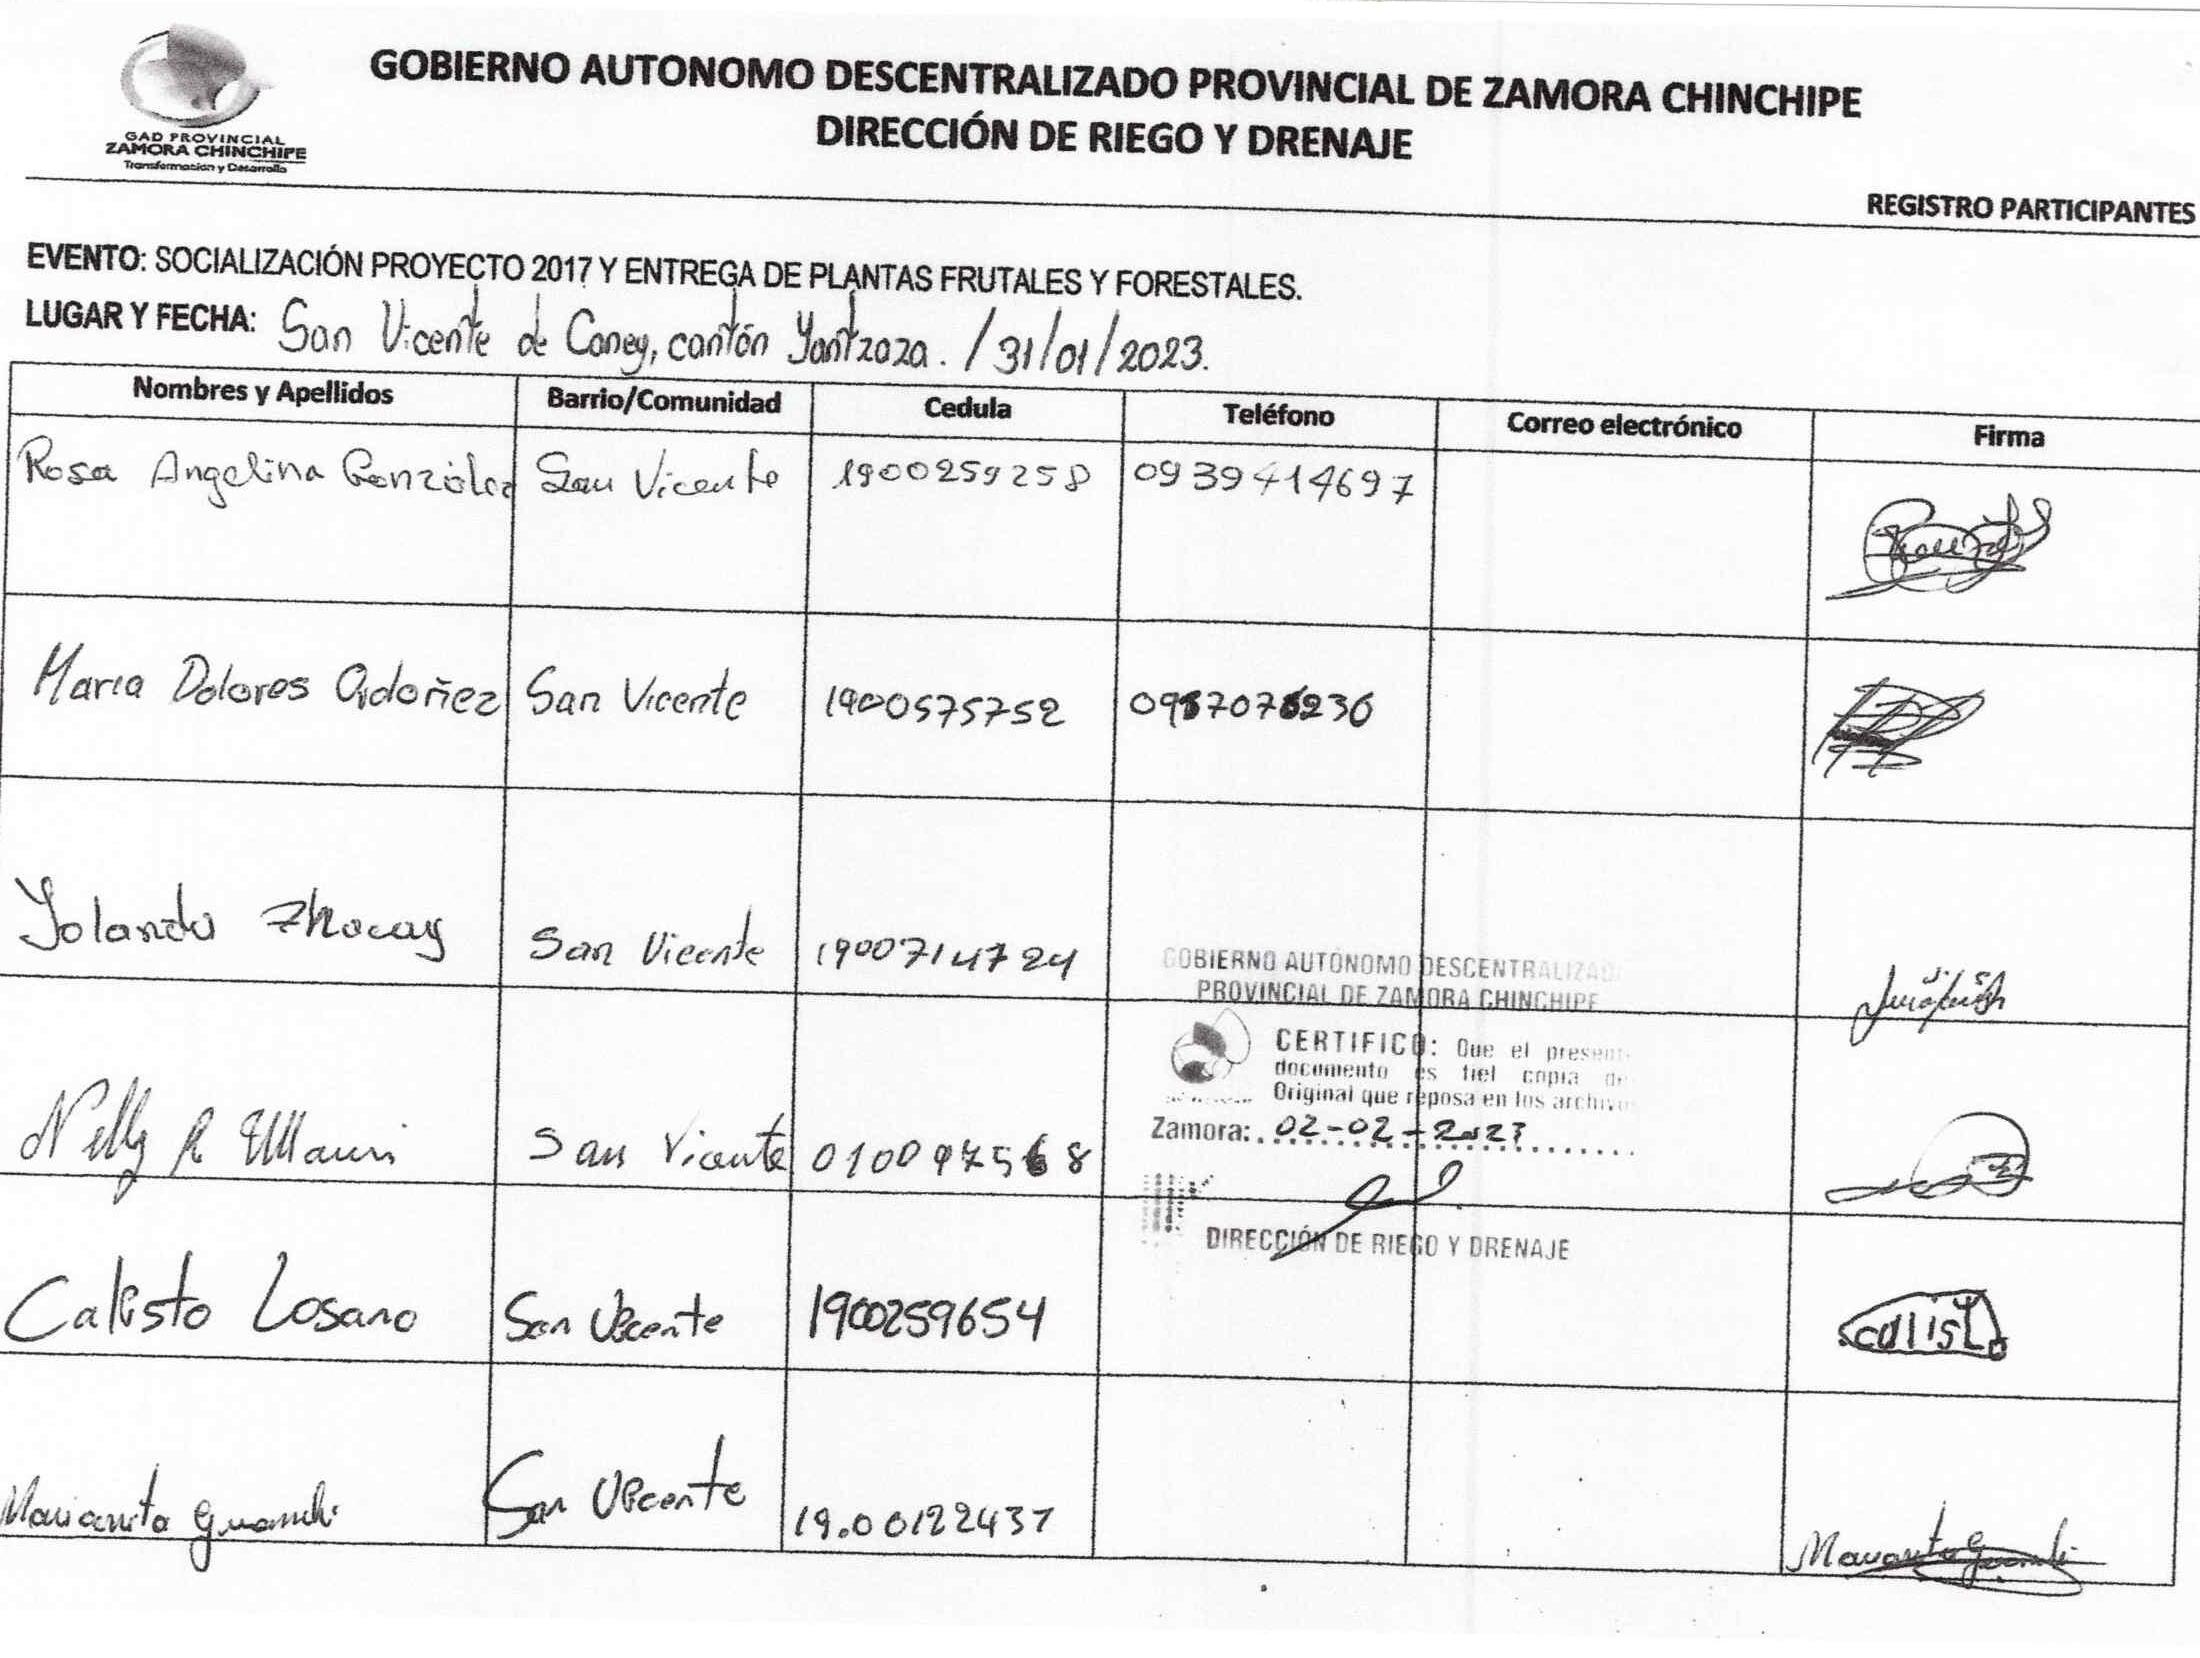 GAD PROVINCIAL
ZAMORA CHINCHIPE
Transformación y Desarrollo
GOBIERNO AUTONOMO DESCENTRALIZADO PROVINCIAL DE ZAMORA CHINCHIPE
DIRECCIÓN DE RIEGO Y DRENAJE
REGISTRO PARTICIPANTES
EVENTO: SOCIALIZACIÓN PROYECTO 2017 Y ENTREGA DE PLANTAS FRUTALES Y FORESTALES.
LUGAR Y FECHA: San Vicente de Caney, cantón Yantzaza. / 31/01/2023.
Nombres y Apellidos Barrio/Comunidad Cedula Teléfono Correo electrónico Firma
Rosa Angelina González San Vicente 1900259258 0939414697
Maria Dolores Ordoñez San Vicente 1900575752
Yolanda Zhocay San Vicente 1900714724
GOBIERNO AUTÓNOMO DESCENTRALIZAD
PROVINCIAL DE ZAMORA CHINCHIPE
CERTIFICO: Que el present
documento es fiel copia de
Original que reposa en los archivo
Zamora: 02-02-2023
DIRECCIÓN DE RIEGO Y DRENAJE
Nelly R San Vicente
Calisto Losano San Vicente 1900259654
Marianita San Vicente 19.00122437